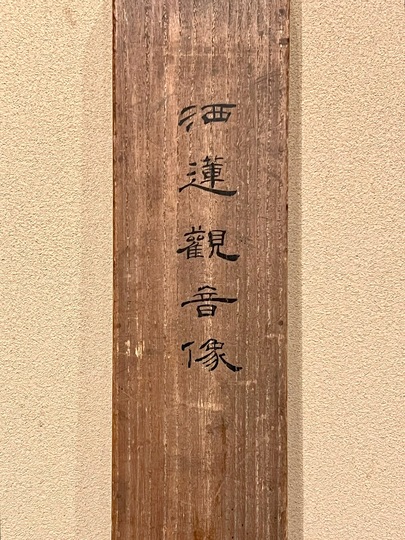 洒蓮觀音像